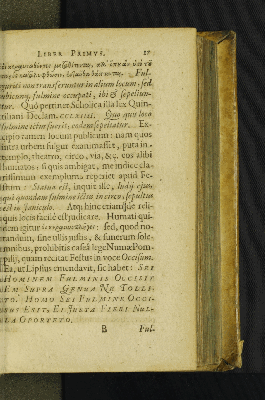 LIBER PRIMVS. 17
Ful-
gurati non transferuntur in alium locum, sed
ubicunq; fulmine occupati, ibi & sepeliun-
tur. Quò pertinet Scholica illa lex Quin-
tiliani Declam. Quo quis loco
fulmine ictus fuerit, eodem sepeliatur. Ex-
cipio tamen locum publicum: nam quos
intra urbem fulgur exanimasset, puta in
templo, theatro, circo, via, &c. eos alibi
humatos: si quis ambigat, me indice cla-
rissimum exemplum reperiet apud Fe-
stum: Statua est, inquit ille, ludij ejus,
qui quondam fulmine ictus in circo, sepultus
est in Janiculo. Atq; hinc etiamsi de reli-
quis locis facilè est judicare. Humati qui-
dem igitur sed, quod no-
tandum, sine ullis justis, & funerum sole-
mnibus, prohibitis capse lege Numæ Pom-
pilij, quam recitat Festus in voce Occisum.
Ea, ut Lipsius emendavit, sic habet: SEI
HOMINEM FULMINIS OCCISIT
EM SUPRA GENUA NE TOLLI-
TO. HOMO SEI FULMINE OCCI-
SUS ESIT, EI JUSTA FIERI NUL-
LA OPORTETO.
B Ful-